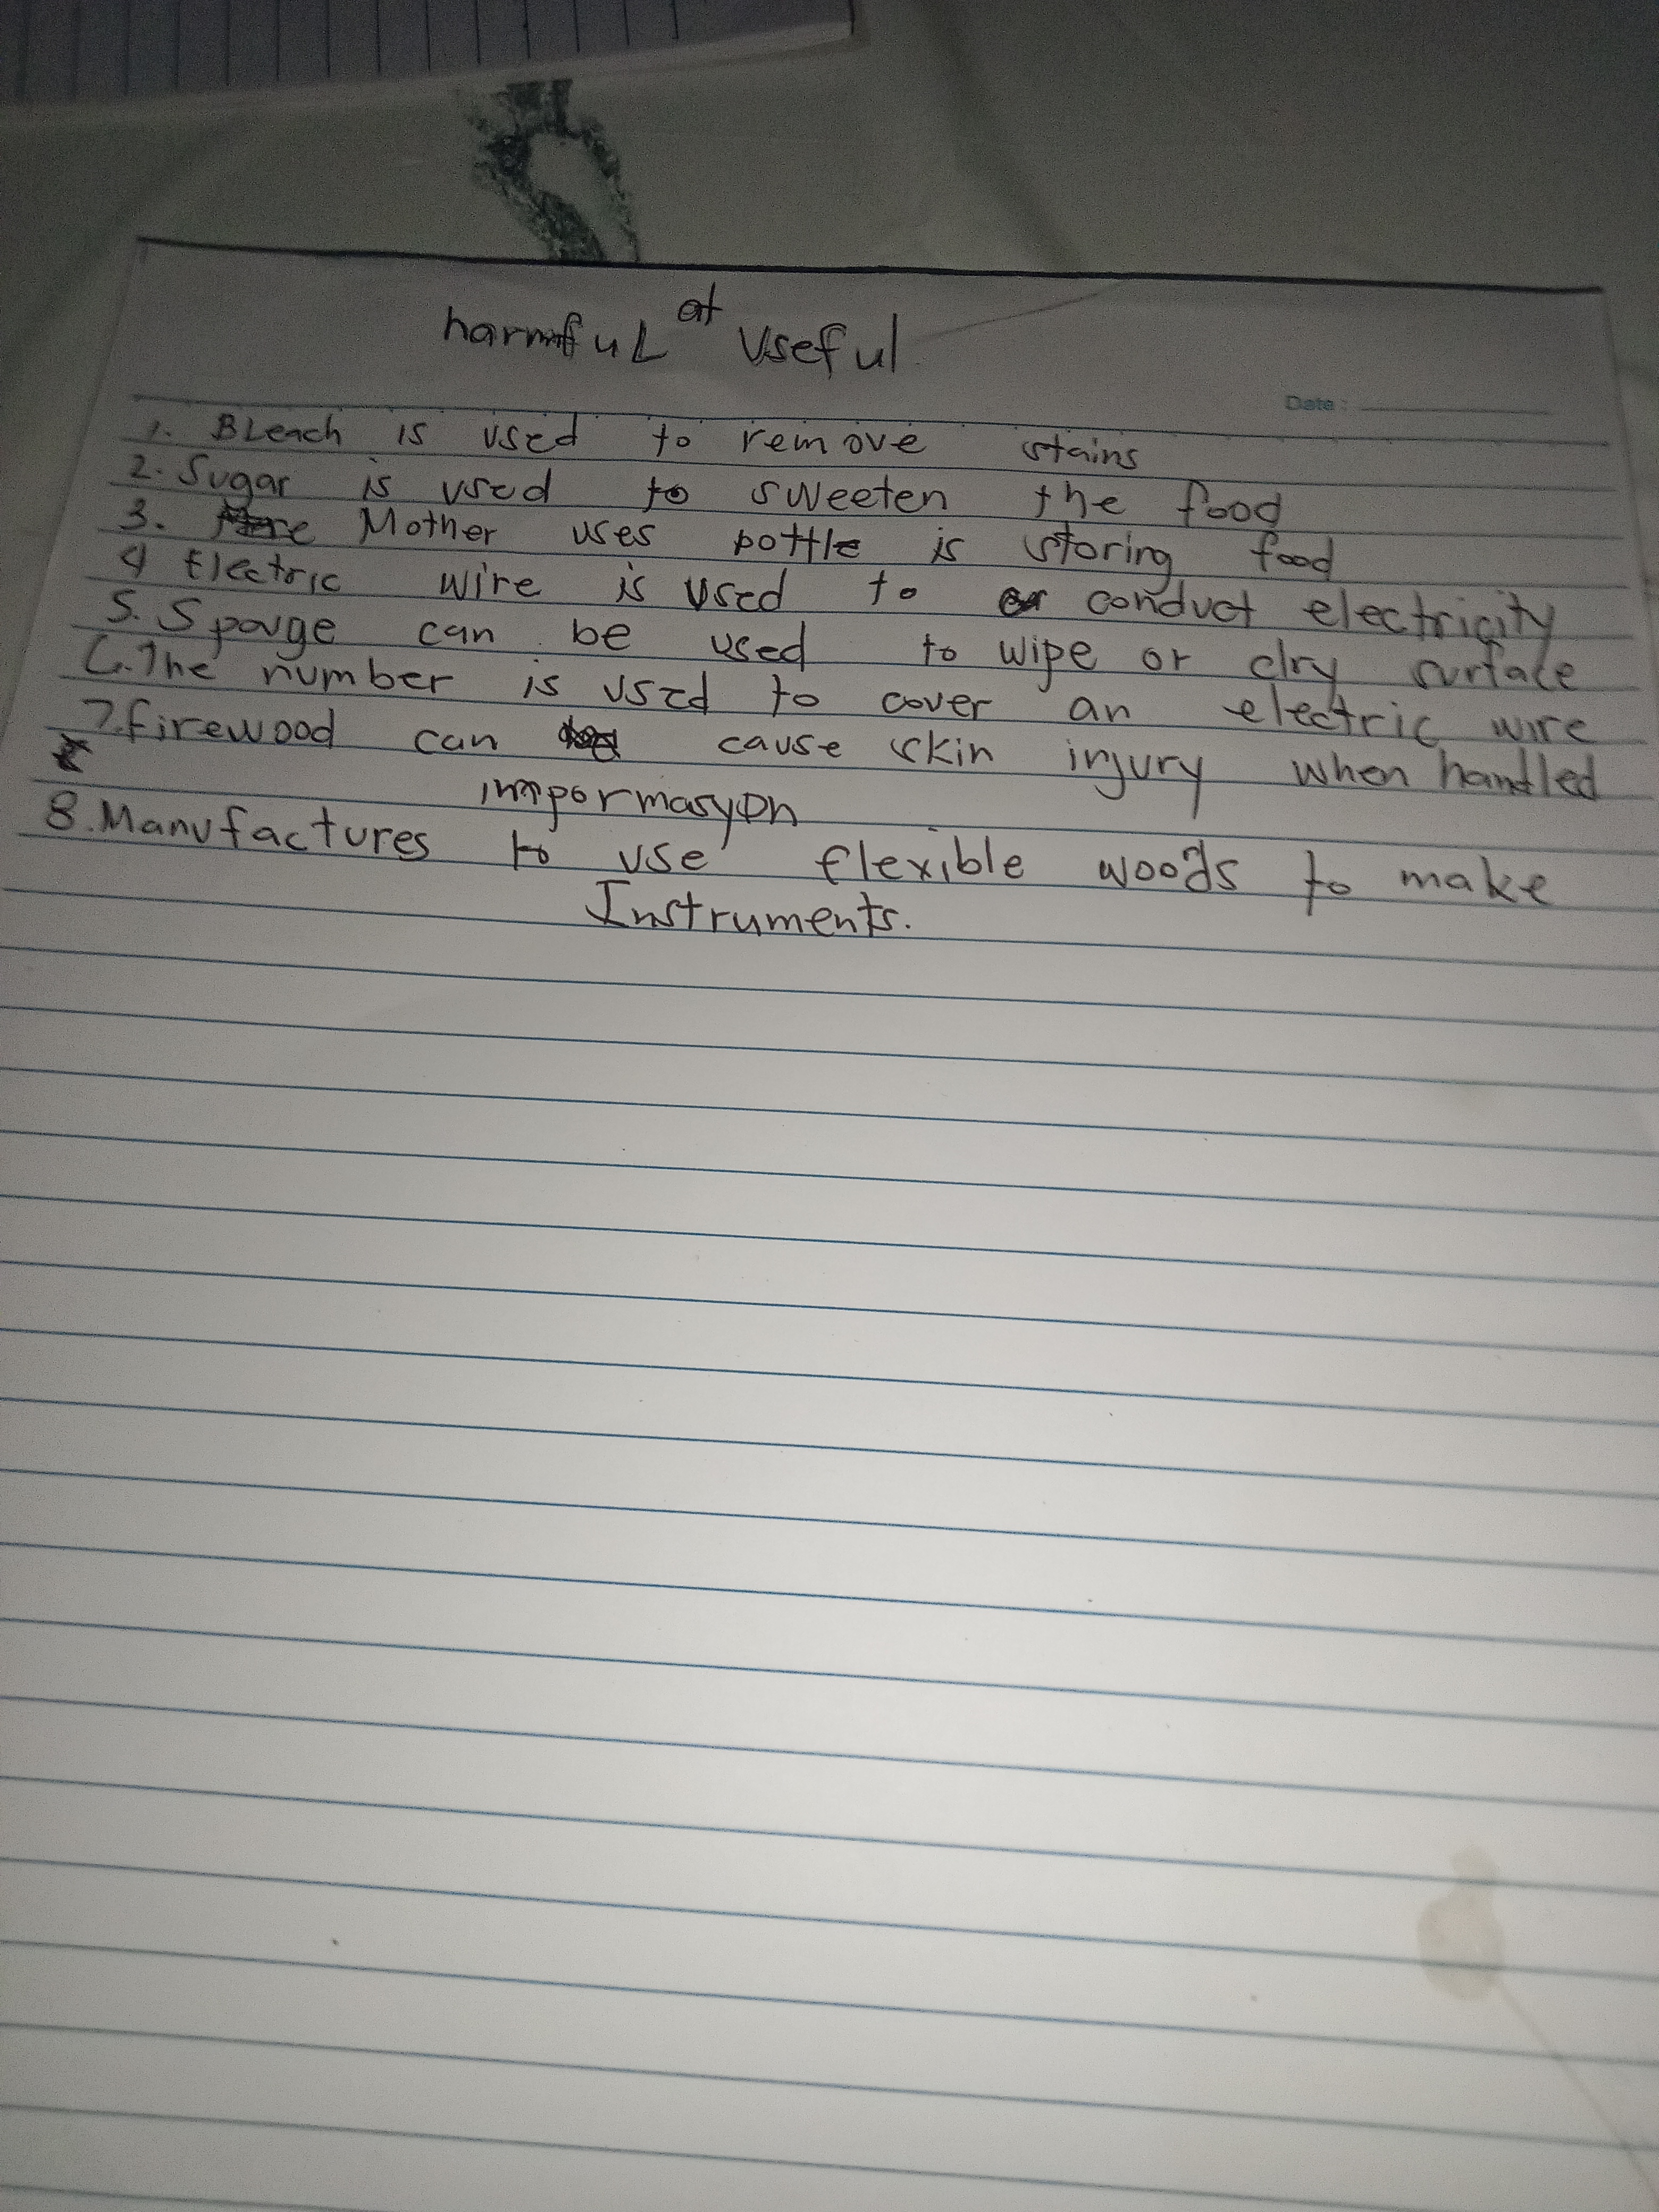 harmful at Useful
Date:
1. Bleach is used to remove stains
2. Sugar is used to sweeten the food
3. Mother uses bottle is storing food
4 Electric wire is used to conduct electricity
5. Sponge can be used to wipe or dry surface
6. The number is used to cover an electric wire
7. firewood can cause skin injury when handled
impormasyon
8. Manufactures to use flexible woods to make
Instruments.